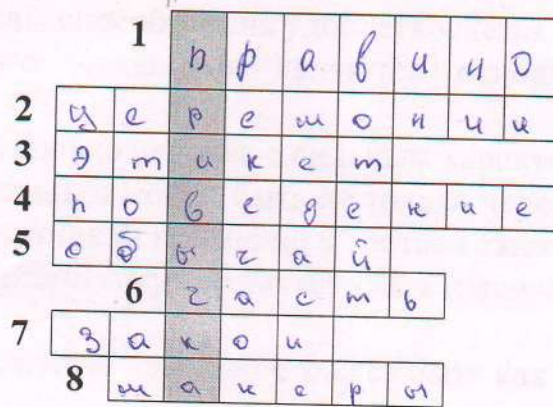 1 правило
2 церемонии
3 этикет
4 поведение
5 обычай
6 часть
7 закон
8 манеры